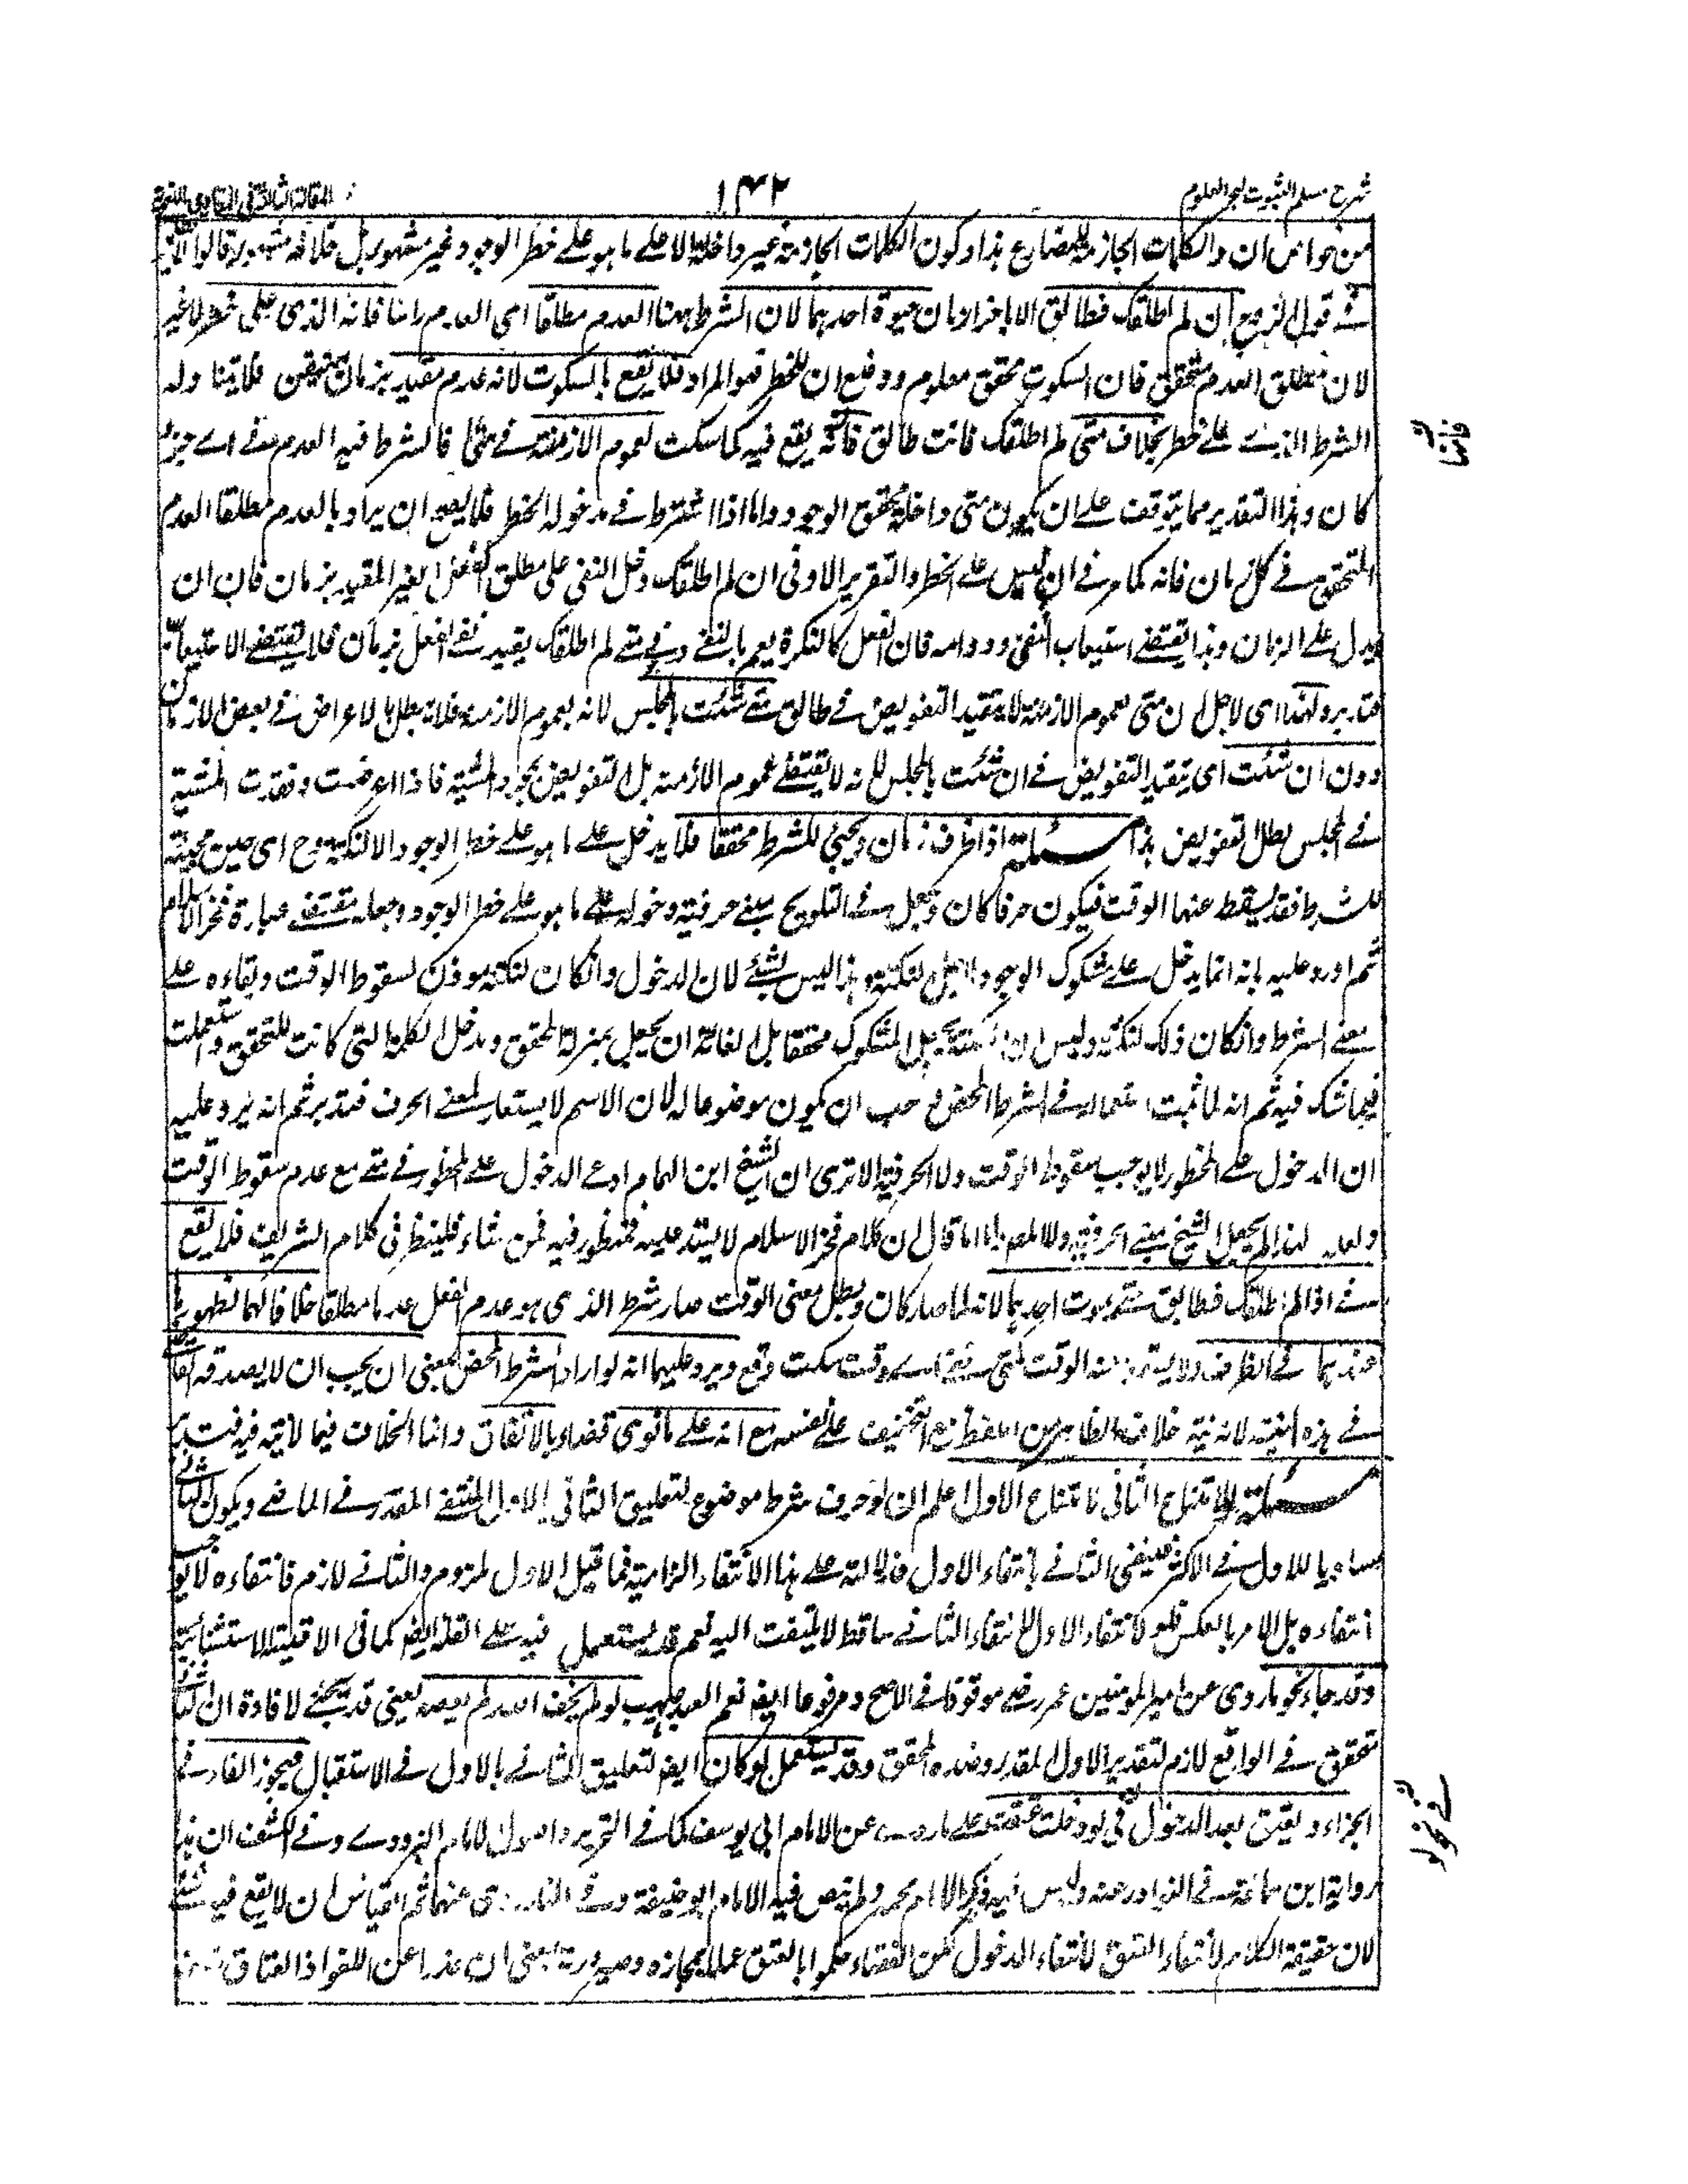 شرح مسلم الثبوت لبحر العلوم
١٤٢
المقالة الثالثة في المبادي اللغوية
من خواص ان والكلمات الجازمة للمضارع هذا وكون الكلمات الجازمة غير داخلة الا على ما هو على خطر الوجود غير مشهور بل خلافه مشهور قالوا لا يقع
في قول الزوج ان لم اطلقك فطالق الا باخر ازمان حيوة احدهما لان الشرط ههنا العدم مطلقا اي العدم رأسا فانه الذي على خطر لا غير
لان مطلق العدم متحقق فان السكوت محقق معلوم ودفع ان للخطر فهو المراد فلا يقع بالسكوت لانه عدم مقيد بزمان متيقن فلا يتناوله
الشرط الذي على خطر بخلاف متى لم اطلقك فانت طالق فانه يقع فيه كما سكت لعموم الازمنة في متى فالشرط فيه العدم في اي جزء
كان وهذا التقدير مما يتوقف على ان يكون متى داخلة محقق الوجود واما اذا اشترط في مدخوله الخطر فلا يصح ان يراد بالعدم مطلقا العدم
المتحقق في كل زمان فانه كما مر في ان ليس على الخطر والتقرير الاوفى ان لم اطلقك دخل النفي على مطلق الفعل الغير المقيد بزمان فان ان
يدل على الزمان وهذا يقتضي استيعاب النفي ودوامه فان الفعل كالنكرة يعم بالنفي وفي متى لم اطلقك يقيد نفي الفعل بزمان فلا يقتضي الاستيعاب
فتدبر ولهذا اي لاجل ان متى لعموم الازمنة لا يتقيد التفويض في طالق متى شئت بالمجلس لانه بعموم الازمنة فلا يبطل بالاعراض في بعض الازمان
دون ان شئت اي يتقيد التفويض في ان شئت بالمجلس لانه لا يقتضي عموم الازمنة بل التفويض بمجرد المشية فاذا اعرضت وفقدت المشية
في المجلس بطل التفويض هذا مسئلة اذا ظرف زمان ويجئ للشرط محققا فلا يدخل على ما هو على خطر الوجود الا لنكتة وح اي حين مجيئه
للشرط فقد يسقط عنها الوقت فيكون حرفا كان وجعل في التلويح مبنى حرفيته دخوله على ما هو على خطر الوجود وجعله مقتضى عبارة فخر الاسلام
ثم اورد عليه بانه انما يدخل على مشكوك الوجود لاجل نكتة وهذا ليس بشئ لان الدخول وان كان لنكتة موذن لسقوط الوقت وبقاءه على
معنى الشرط وان كان ذلك لنكتة وليس ان النكتة تجعل المشكوك محققا بل الغاية ان يجعل بمنزلة المحقق ويدخل الكلمة التي كانت للتحقق واستعملت
فيما شك فيه ثم انه لما ثبت استعماله في الشرط المحض وجب ان يكون موضوعا له لان الاسم لا يستعار لمعنى الحرف فتدبر ثم انه يرد عليه
ان الدخول على الخطور لا يوجب سقوط الوقت ولا الحرفية الا ترى ان الشيخ ابن الهمام ادعى الدخول على الخطور في متى مع عدم سقوط الوقت
ولعله لهذا لم يجعل الشيخ مبنى الحرفية ولا المصنف اما ما قال ان كلام فخر الاسلام لا يستدعيه فمنظور فيه فمن شاء فلينظر في كلام الشريف فلا يقع
في اذا لم اطلقك فطالق حتى يموت احدهما لانه لما صار كان وبطل معنى الوقت صار شرط الذي هو عدم الفعل عدما مطلقا خلافا لهما لظهورها
عندهما في الظرف ولا يسقط عنه الوقت كمتى اي وقت سكت وقع ويرد عليهما انه لو اراد الشرط المحض بمعنى ان يجب ان لا يصدقه القاضي
في هذه النية لانه نية خلاف الظاهر من اللفظ مع التخفيف على نفسه مع انه على ما نوى قضاء بالاتفاق وانما الخلاف فيما لا نية فيه فتدبر
مسئلة لو لامتناع الثاني لامتناع الاول اعلم ان لو حرف شرط موضوع لتعليق الثاني بالاول المنتفى المقدر في الماضي ويكون الثاني
مساويا للاول في الاكثر فينتفى الثاني بانتفاء الاول فدلالته على هذا الانتفاء التزامية فما قيل الاول ملزوم والثاني لازم فانتفاءه لا يوجب
انتفاءه بل الامر بالعكس فلو لانتفاء الاول لانتفاء الثاني ساقط لا يلتفت اليه نعم قد يستعمل فيه على القلة ايضا كما في الاقيسة الاستثنائية
وقد جاء نحو ما روي عن امير المومنين عمر رضي موقوفا في الاصح ومرفوعا ايضا نعم العبد صهيب لو لم يخف الله لم يعصه يعني قد يجئ لافادة ان الثاني
متحقق في الواقع لازم لتقدير الاول المقدر وضده المحقق وقد يستعمل لو كان ايضا لتعليق الثاني بالاول في الاستقبال فيجوز الفاء في
الجزاء ويعتق بعد الدخول في لو دخلت عتقت على ما روي عن الامام ابي يوسف كما في التحرير واصول الامام البزدوي وفي الكشف ان هذا
رواية ابن سماعة في النوادر عنه وليس فيه ذكر الامام محمد ولم ينص فيه الامام ابو حنيفة وفي عنهما ثم القياس ان لا يقع فيه شئ
لان حقيقة الكلام لانتفاء العتق لانتفاء الدخول لكن الفقهاء حكموا بالعتق عملا بمجازه وصيرورته بمعنى ان عذرا عن اللغو اذ العتاق